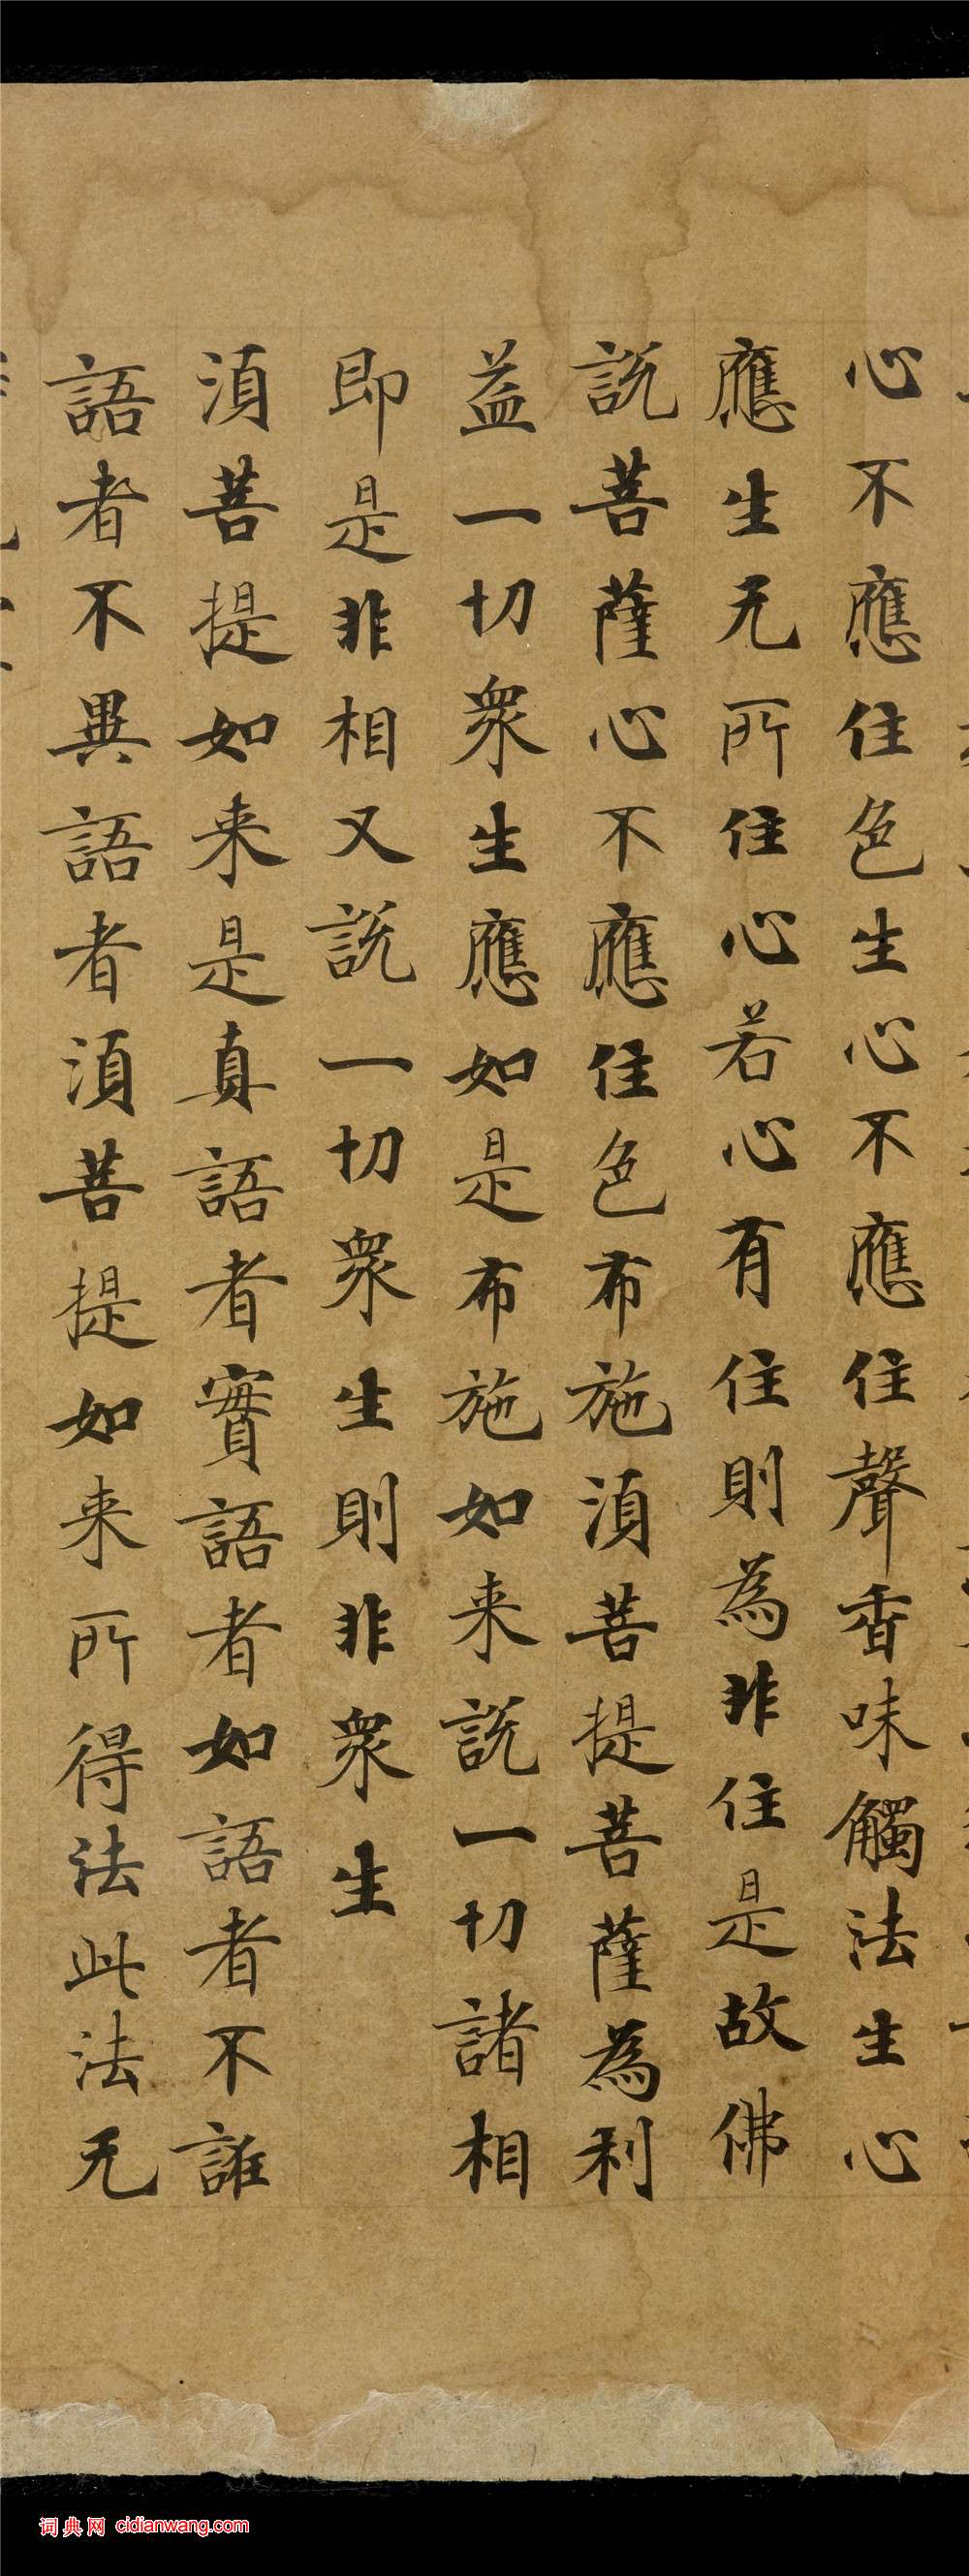 心不應住色生心不應住聲香味觸法生心
應生无所住心若心有住則為非住是故佛
說菩薩心不應住色布施須菩提菩薩為利
益一切眾生應如是布施如来說一切諸相
即是非相又說一切眾生則非眾生
須菩提如来是真語者實語者如語者不誑
語者不異語者須菩提如来所得法此法无
词典网 cidianwang.com